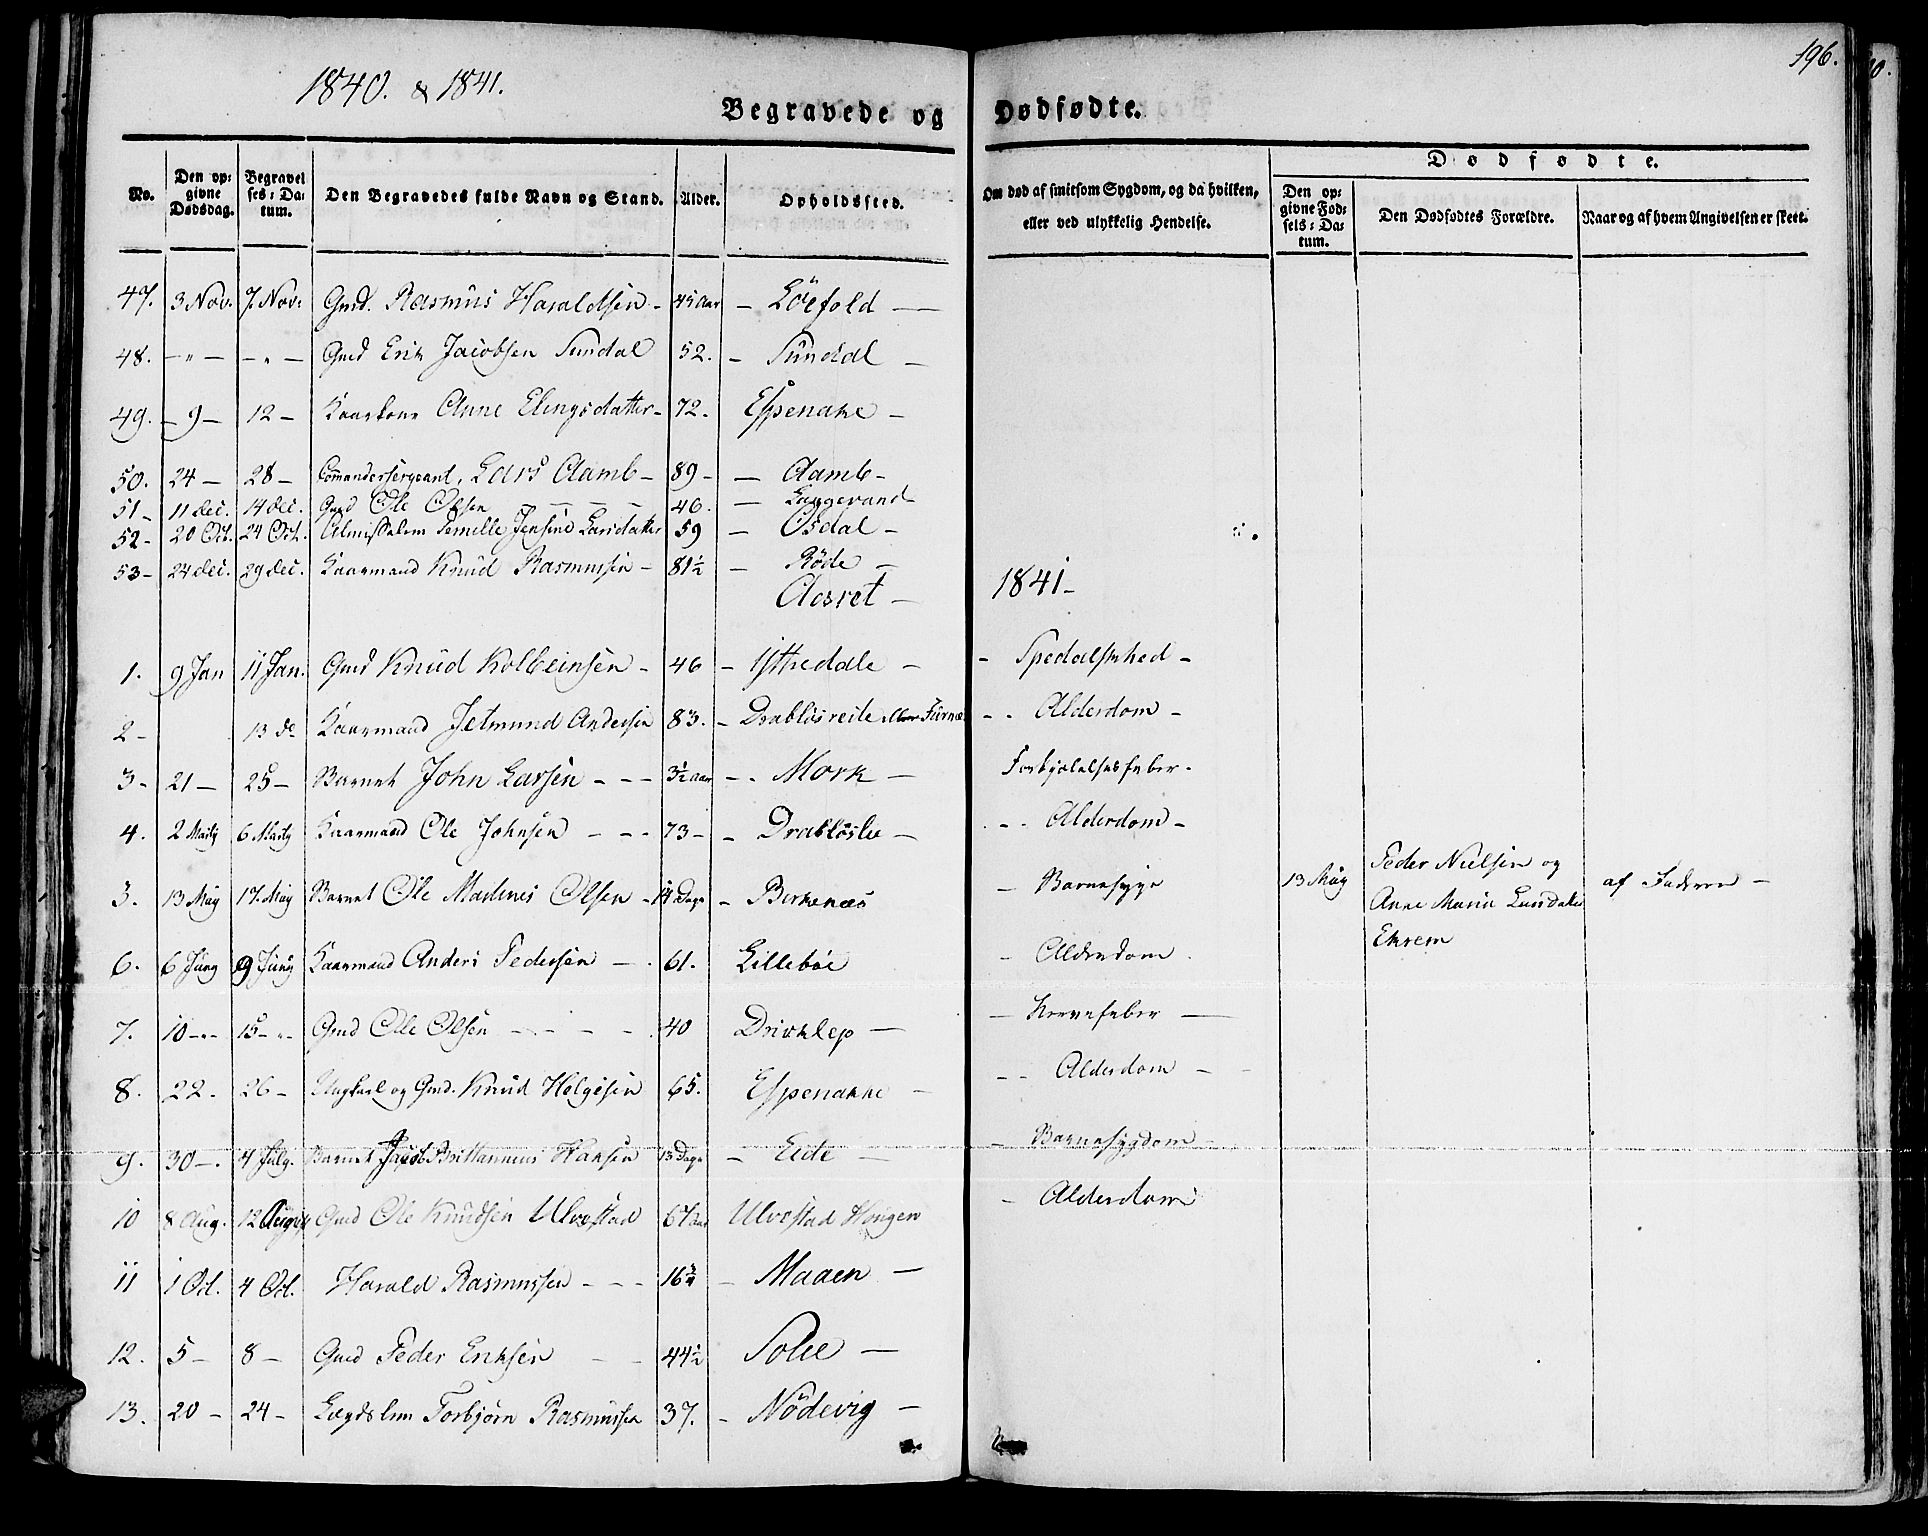 1840. & 1841.
196.
Begravede og Dødfødte.
No. | Den op= givne Dødsdag. | Begravel ses= Da= tum. | Den Begravedes fulde Navn og Stand. | Alder. | Opholdssted. | Om død af smitsom Sygdom, og da hvilken, eller ved ulykkelig Hendelse. | Dødfødte. | Den op= givne Fød= sels= Da= tum. | Den Dødfødtes Forældre. | Naar og af hvem Angivelsen er skeet.
47. 3 Nov. 7. Nov: Gmd. Rasmus Haraldsen - 45 Aar - Löefold -
48. - " - - " - Gmd Erik Jacobsen Sundal 52. - Sundal -
49. - 9 - 12 - Kaarkone Anne Elingsdatter - 72. Espenake -
50. 24 - 28 - Comandersergeant, Lars Aamb - 89 - - Aamb -
51 - 11 dec. 14 dec. Gmd Ole Olsen - - - 46. - Langevand
52 - 20 Oct. 24 Oct. Almisselem Pernille Jensine Larsdatter 59 - Osdal -
53 - 24 dec. 29 dec. Kaarmand Knud Rasmussen - 81½ - Röde -
Aaret - 1841 -
1. 9 Jan 11 Jan. Gmd Knud Kolbeinsen - 46 - Ytredale - - Spedalskhed -
2 - 13 do Kaarmand Jetmund Andersen 83. - Drablösreite - - Alderdom -
3 - 21 - 25 - Barnet John Larsen - - - 3½ Aar - - Mork - Forkjølelsesfeber -
4. 2 Marty 6 Marty Kaarmand Ole Johnsen - - - 73 - - Drabløslie - - - Alderdom -
5. 13 May 17. May Barnet Ole Madenes Olsen - 14 Dage - Berkenæs - Barnesyge 13 May Peder Nielsen og
Anne Maria Larsdatter af Faderen -
Ekrem
6. 6 Juny 9 Juny Kaarmand Anders Pedersen - . 61. Lillebøe - Alderdom.
7. 10 - " - 15 - " - Gmd Ole Olsen - - - - 40 Drivklep - - Nervefeber -
8. 22. 26 - Ungkarl og Gmd. Knud Helgesen 65. Espenakke - - - Alderdom - -
9. 30 -. 4 July. Barnet Jacob Brittannius Hansen 13 Dage - Eide - - Barnesygdom -
10 8 Aug. 12 Augus Gmd Ole Knudsen Ulvestad 67 Aar Ulvestad Hougen - Alderdom
11 1 Oct. 4 Oct. Harald Rasmussen - - - 16¾ - Maaen -
12. 5 - 8 - Gmd Peder Eriksen - - 44½ Solie -
13. 20 - 24 - Lægdslem Torbjørn Rasmussen 37. - Nödevig -